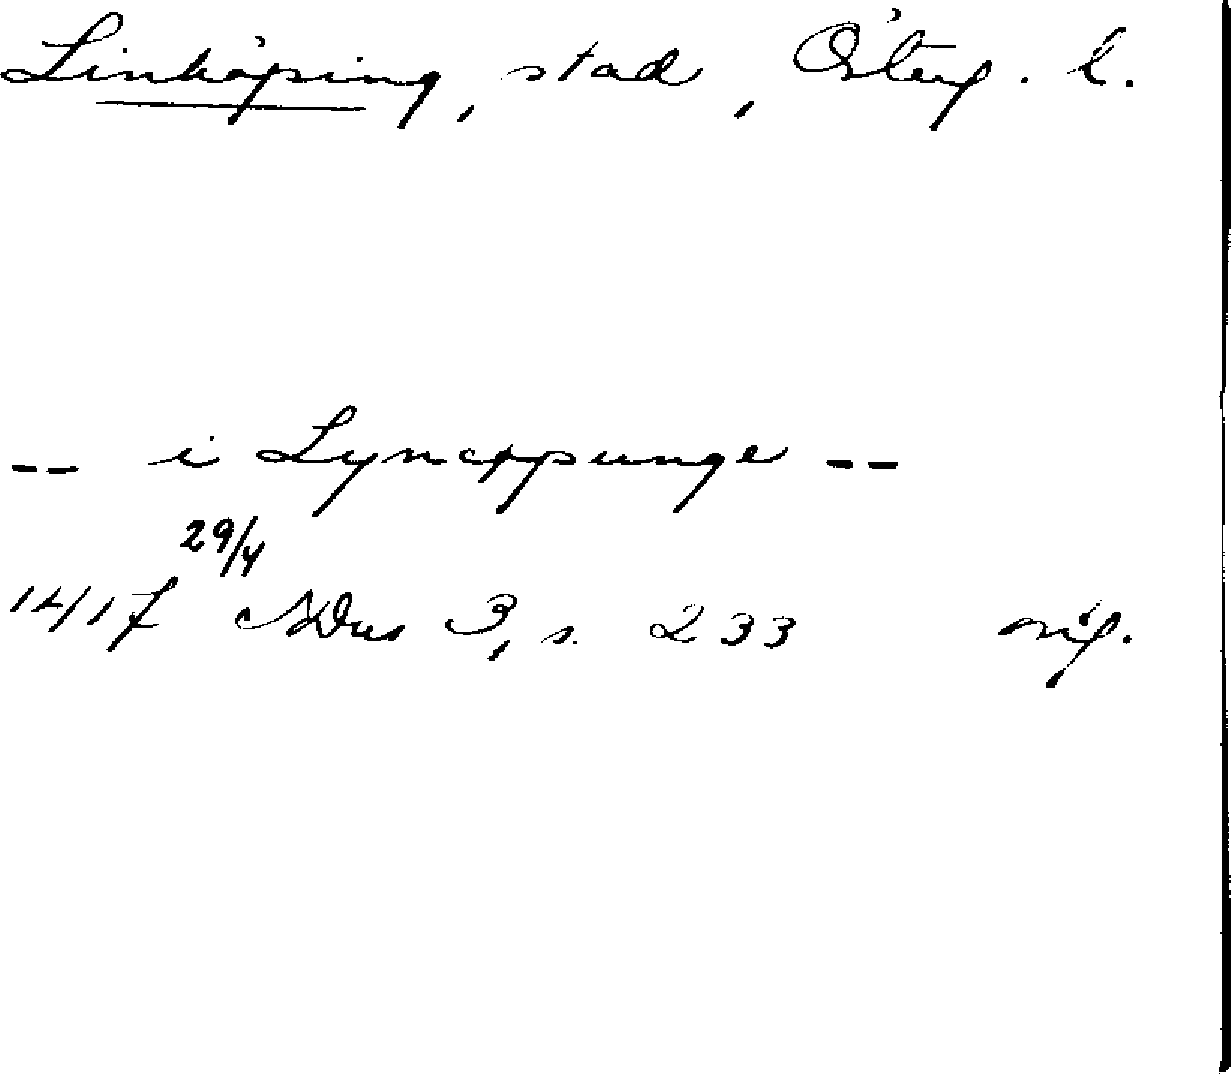 Linköping, stad, Österg. l.
-- i Lyncøpunge --
29/4
1417 SDns 3, s. 233 orig.